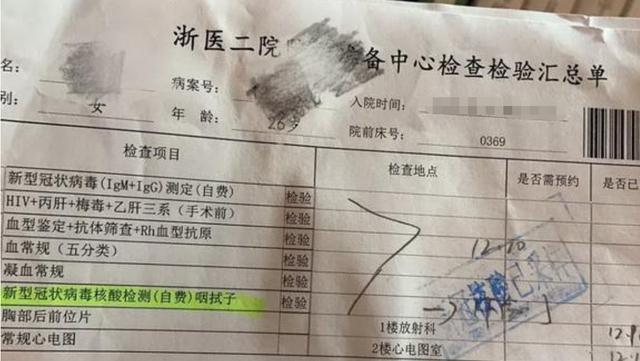 浙医二院 备中心检查检验汇总单
名: 病案号: 入院时间:
别: 女 年 龄: 26岁 院前床号: 0369
检查项目 检查地点 是否需预约 是否已
新型冠状病毒(IgM+IgG)测定(自费) 检验
HIV+丙肝+梅毒+乙肝三系（手术前） 检验
血型鉴定+抗体筛查+Rh血型抗原 检验
血常规（五分类） 检验 12.10
凝血常规 检验
新型冠状病毒核酸检测(自费)咽拭子 检验
胸部后前位片 1楼放射科
常规心电图 2楼心电图室